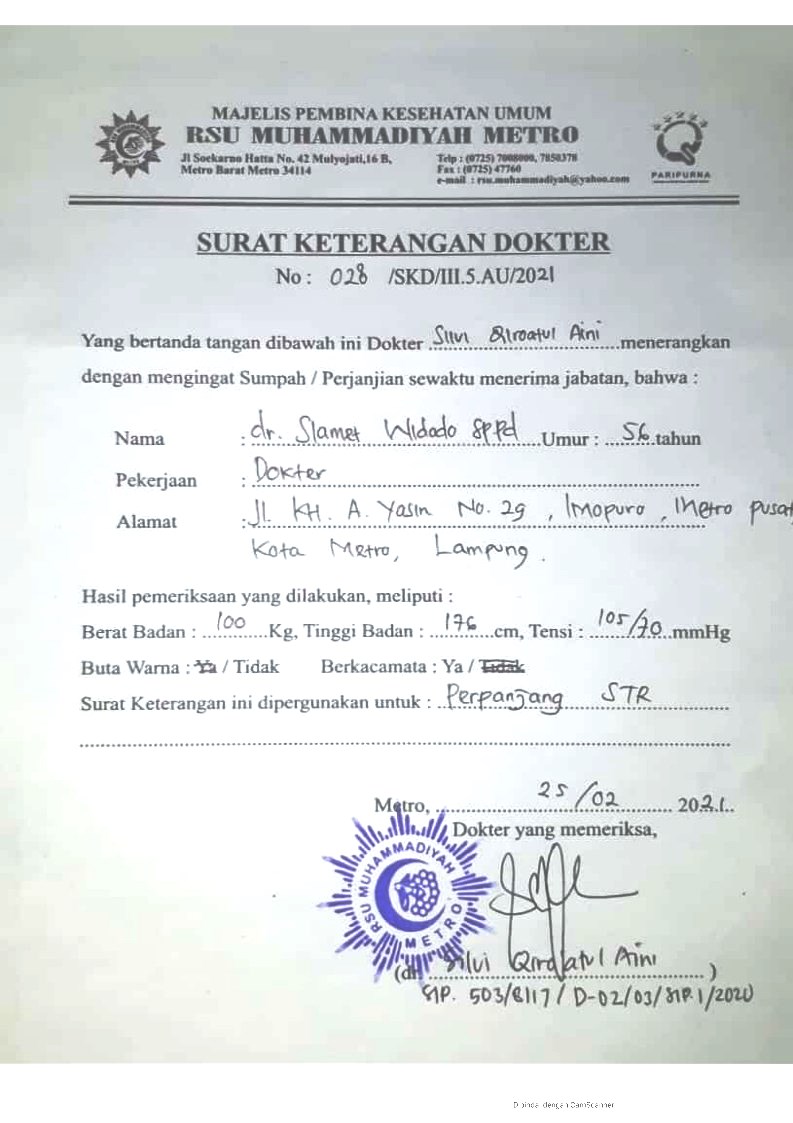 MAJELIS PEMBINA KESEHATAN UMUM
RSU MUHAMMADIYAH METRO
Jl Soekarno Hatta No. 42 Mulyojati,16 B,
Metro Barat Metro 34114
Telp : (0725) 7008000, 7850378
Fax : (0725) 47760
e-mail : rsu.muhammadiyah@yahoo.com
PARIPURNA
SURAT KETERANGAN DOKTER
No : 028 /SKD/III.5.AU/2021
Yang bertanda tangan dibawah ini Dokter Silvi Qiroatul Aini menerangkan
dengan mengingat Sumpah / Perjanjian sewaktu menerima jabatan, bahwa :
Nama : dr. Slamet Widodo SpPd Umur : 56 tahun
Pekerjaan : Dokter
Alamat : Jl. KH. A. Yasin No. 29 , Imopuro , Metro pusat
Kota Metro, Lampung.
Hasil pemeriksaan yang dilakukan, meliputi :
Berat Badan : 100 Kg, Tinggi Badan : 176 cm, Tensi : 105/70 mmHg
Buta Warna : Ya / Tidak Berkacamata : Ya / Tidak
Surat Keterangan ini dipergunakan untuk : Perpanjang STR
Metro, 25/02 2021
Dokter yang memeriksa,
RSU MUHAMMADIYAH METRO
(dr. Silvi Qiroatul Aini )
SIP. 503/8117 / D-02/03/SIP.1/2020
Dipindai dengan CamScanner